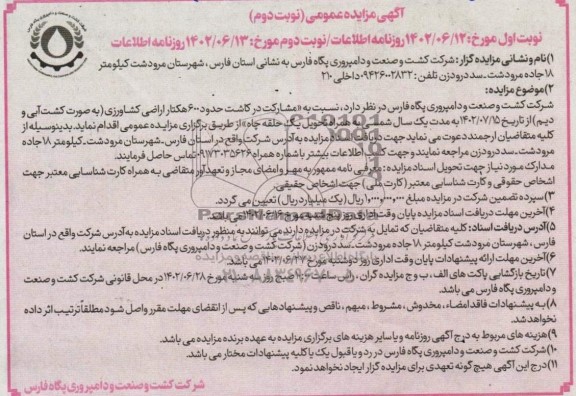 آگهی مزایده عمومی (نوبت دوم)
نوبت اول مورخ: ۱۴۰۲/۰۶/۱۲ روزنامه اطلاعات / نوبت دوم مورخ: ۱۴۰۲/۰۶/۱۳ روزنامه اطلاعات
۱) نام و نشانی مزایده گزار: شرکت کشت و صنعت و دامپروری پگاه فارس به نشانی استان فارس، شهرستان مرودشت کیلومتر
۱۸ جاده مرودشت ـ سد درودزن تلفن: ۰۹۴۲۶۰۰۲۸۳۲ داخلی ۲۱۰
۲) موضوع مزایده:
شرکت کشت و صنعت و دامپروری پگاه فارس در نظر دارد، نسبت به «مشارکت در کاشت حدود ۶۰۰ هکتار اراضی کشاورزی (به صورت کشت آبی و
دیم) از تاریخ ۱۴۰۲/۰۷/۱۵ به مدت یک سال شمسی تحویل یک حلقه چاه» از طریق برگزاری مزایده عمومی اقدام نماید. بدینوسیله از
کلیه متقاضیان ارجمند دعوت می نماید جهت دریافت اسناد مزایده به آدرس شرکت واقع در استان فارس ـ شهرستان مرودشت ـ کیلومتر ۱۸ جاده
مرودشت ـ سد درودزن مراجعه نمایند و جهت اطلاعات بیشتر با شماره همراه ۰۹۱۷۳۰۳۵۶۲۶ تماس حاصل فرمایند.
مدارک مورد نیاز جهت تحویل اسناد مزایده: معرفی نامه ممهور به مهر و امضای مجاز و تعهدآور متقاضی به همراه کارت شناسایی معتبر جهت
اشخاص حقوقی و کارت شناسایی معتبر (کارت ملی) جهت اشخاص حقیقی.
۳) سپرده تضمین شرکت در مزایده مبلغ ۱٫۰۰۰٫۰۰۰٫۰۰۰ ریال (یک میلیارد ریال) تعیین می گردد.
۴) آخرین مهلت دریافت اسناد مزایده پایان وقت اداری
۵) آدرس دریافت اسناد: کلیه متقاضیان که تمایل به شرکت در مزایده دارند می توانند به منظور دریافت اسناد مزایده به آدرس شرکت واقع در استان
فارس، شهرستان مرودشت کیلومتر ۱۸ جاده مرودشت ـ سد درودزن (شرکت کشت و صنعت و دامپروری پگاه فارس) مراجعه نمایند.
۶) آخرین مهلت ارائه پیشنهادات پایان وقت اداری روز دوشنبه مورخ ۱۴۰۲/۰۶/۲۷ می باشد.
۷) تاریخ بازگشایی پاکت های الف، ب و ج مزایده گران، رأس ساعت صبح روز سه شنبه مورخ ۱۴۰۲/۰۶/۲۸ در محل قانونی شرکت کشت و صنعت
و دامپروری پگاه فارس می باشد.
۸) به پیشنهادات فاقد امضاء، مخدوش، مشروط، مبهم، ناقص و پیشنهادهایی که پس از انقضای مهلت مقرر واصل شود مطلقاً ترتیب اثر داده
نخواهد شد.
۹) هزینه های مربوط به درج آگهی روزنامه و یا سایر هزینه های برگزاری مزایده به عهده برنده مزایده می باشد.
۱۰) شرکت کشت و صنعت و دامپروری پگاه فارس در رد و یا قبول یک یا کلیه پیشنهادات مختار می باشد.
۱۱) درج این آگهی هیچ گونه تعهدی برای مزایده گزار ایجاد نخواهد نمود.
شرکت کشت و صنعت و دامپروری پگاه فارس